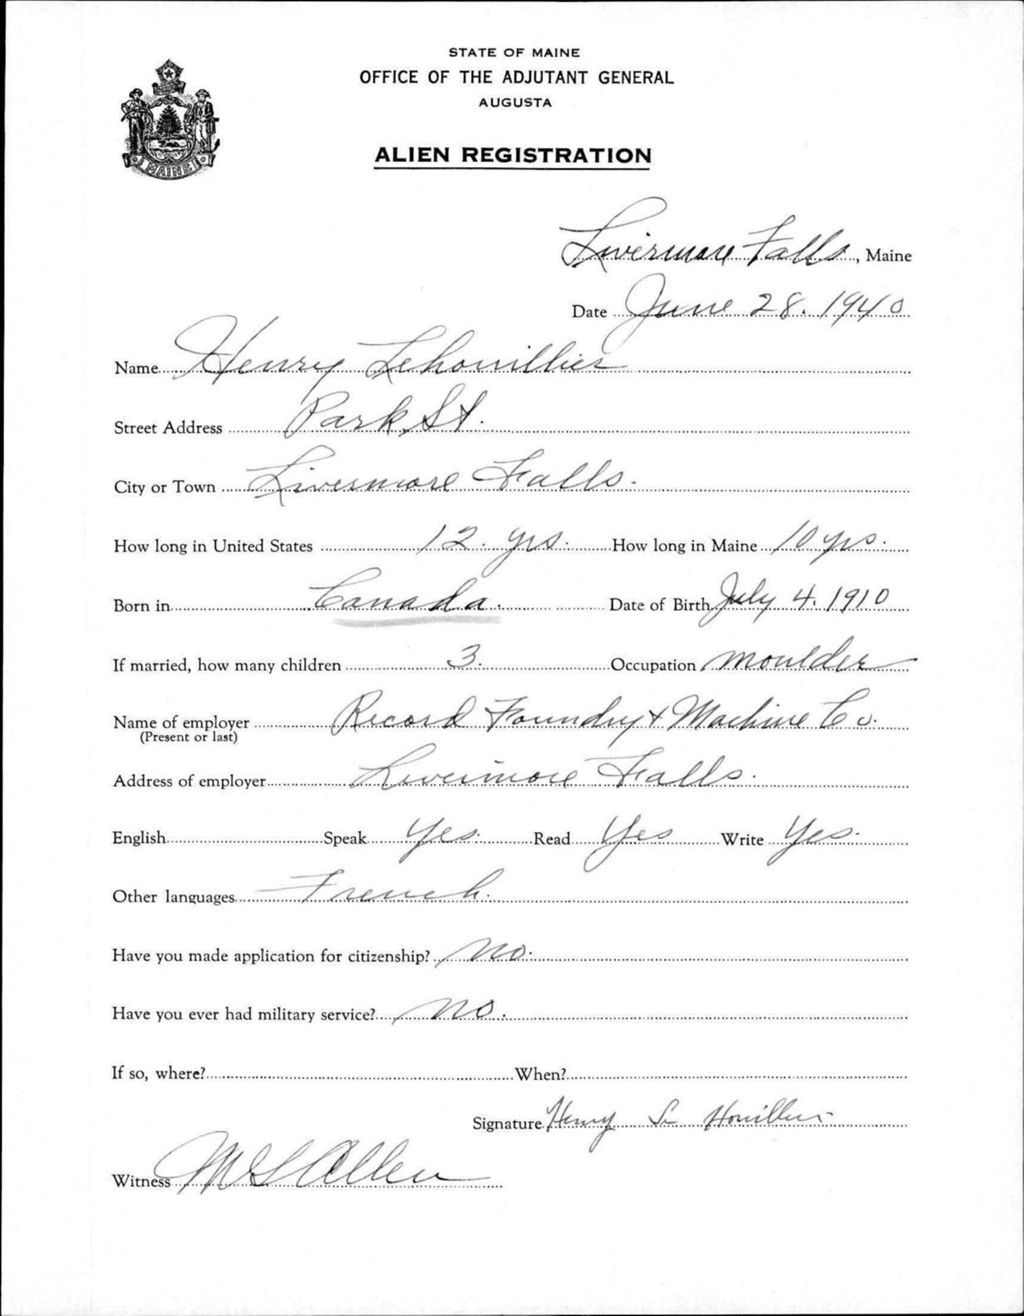 STATE OF MAINE
OFFICE OF THE ADJUTANT GENERAL
AUGUSTA
ALIEN REGISTRATION
MAINE
Livermore Falls, Maine
Date June 28. 1940
Name Henry Lehouillier
Street Address Park St.
City or Town Livermore Falls.
How long in United States 12. yrs. How long in Maine 10 yrs.
Born in Canada. Date of Birth July 4. 1910
If married, how many children 3. Occupation moulder
Name of employer Record Foundry + Machine Co.
(Present or last)
Address of employer Livermore Falls.
English Speak Yes. Read Yes Write Yes.
Other languages French.
Have you made application for citizenship? no.
Have you ever had military service? no.
If so, where? When?
Signature Henry Le Houillier
Witness M S Allen